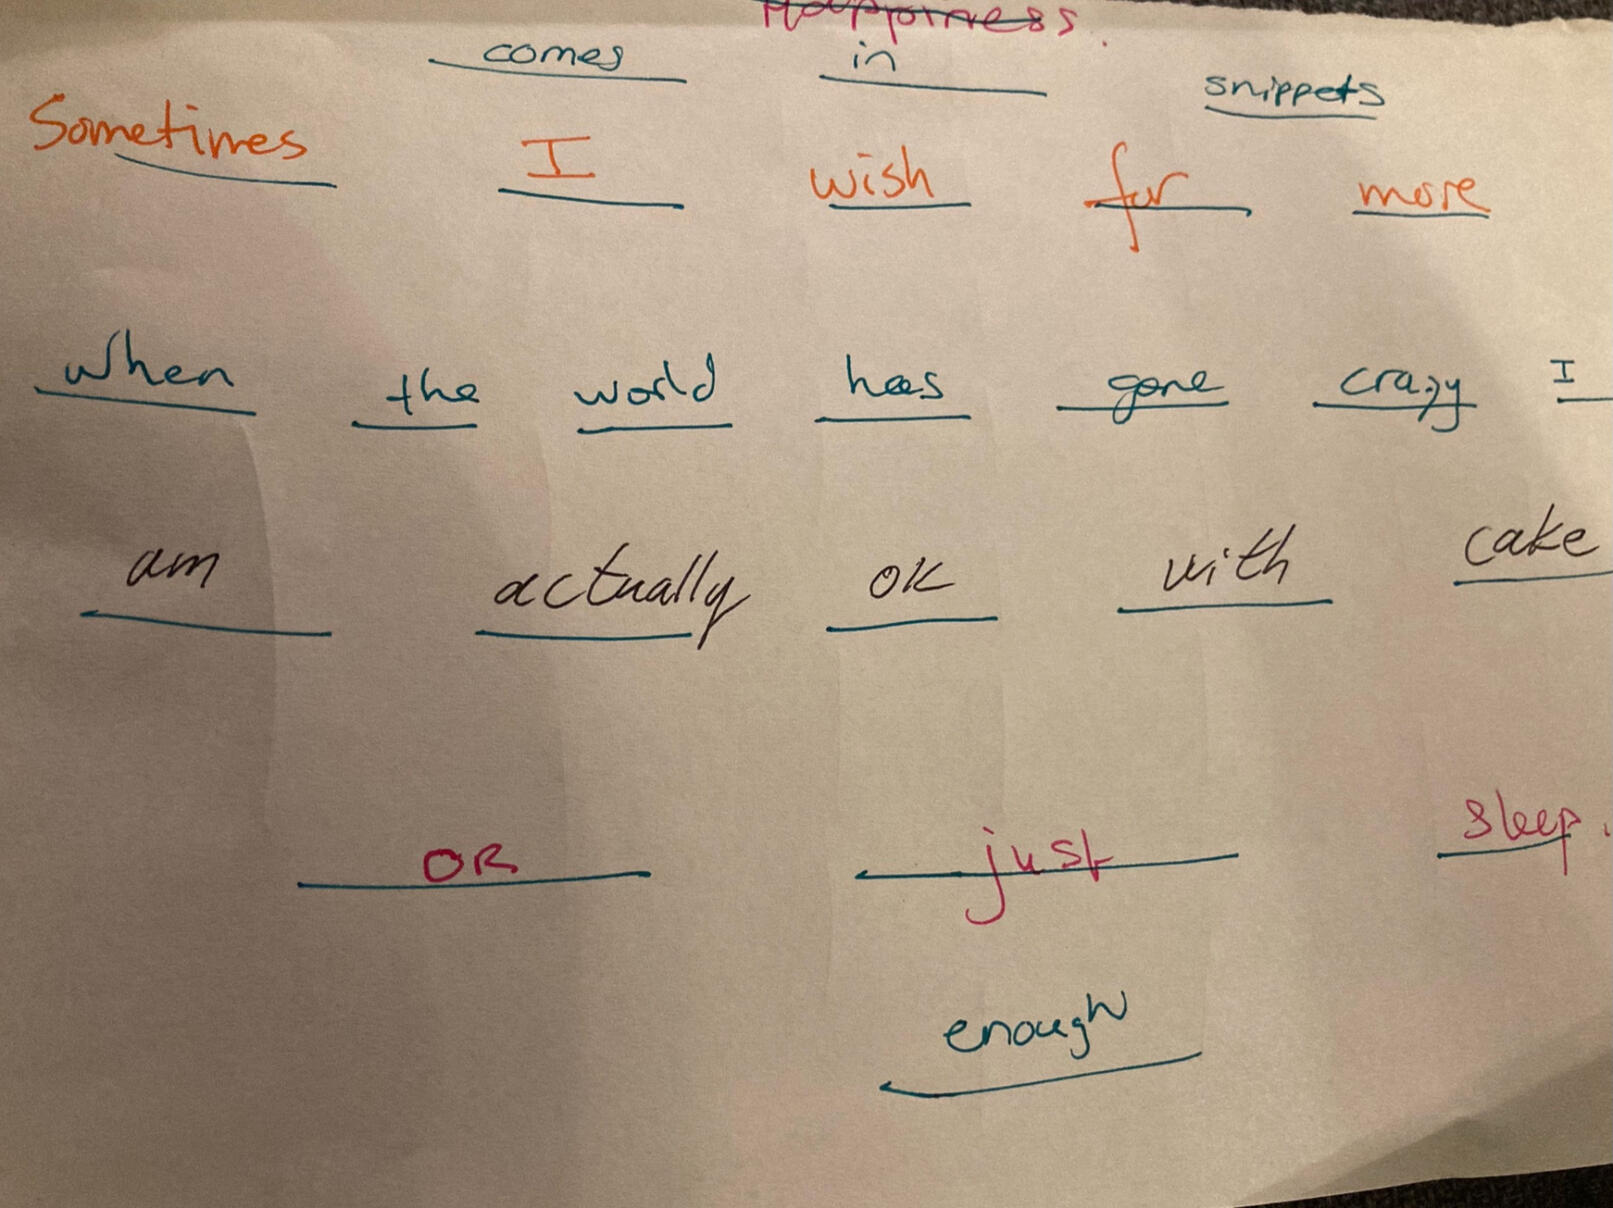 Happiness.
comes in snippets
Sometimes I wish for more
when the world has gone crazy I
am actually ok with cake
OR just sleep.
enough